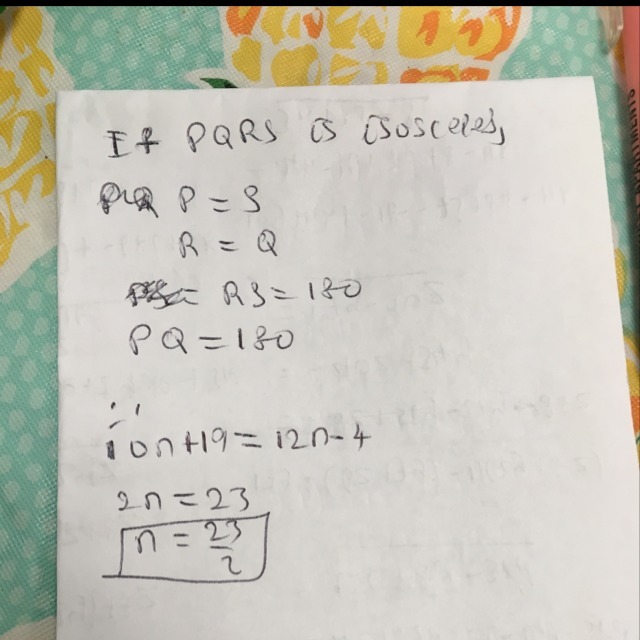 If PQRS is isosceles,
P = S
R = Q
RS = 180
PQ = 180
∴
10n+19 = 12n-4
2n = 23
n = 23/2